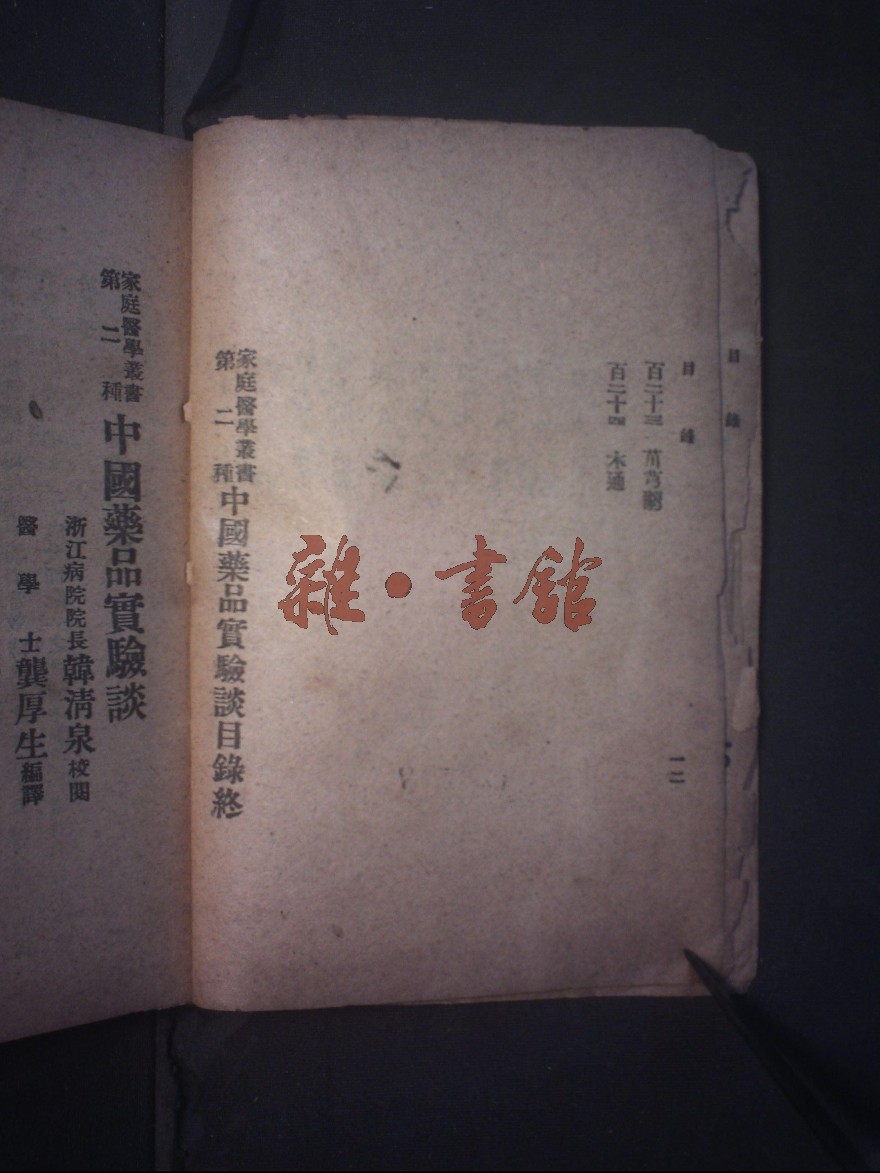 目錄
目錄
百二十三
百二十四 木通
一二
家庭醫學叢書
第二種
中國藥品實驗談目錄終
雜·書館
家庭醫學叢書
第二種
中國藥品實驗談
浙江病院院長韓清泉校閱
醫學士龔厚生編譯